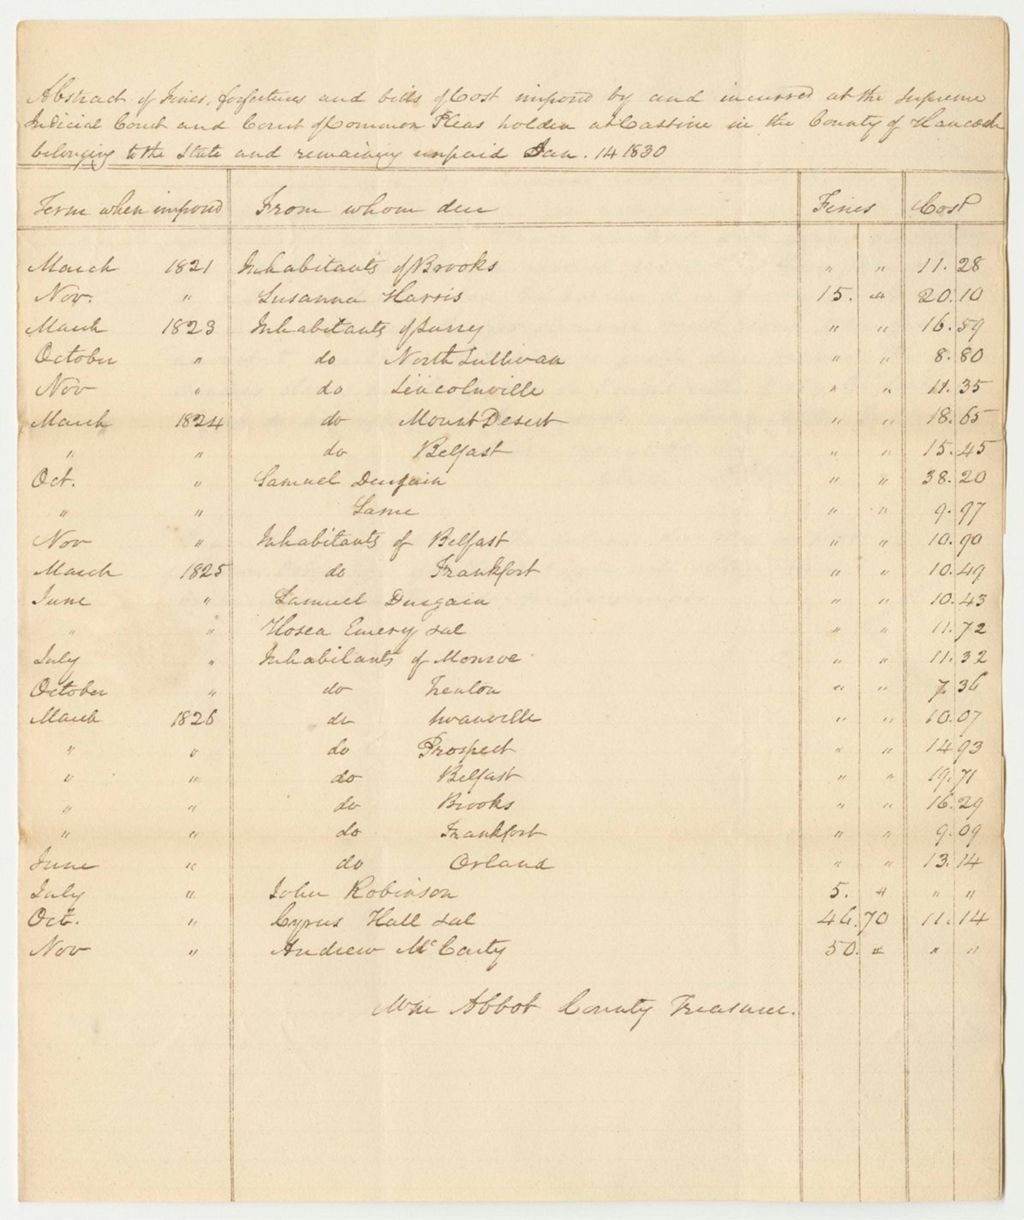 Abstract of Fines, forfeitures and bills of Cost impond by and incurred at the Supreme
Judicial Court and Court of Common Pleas holden at Castine in the County of Hancock
belonging to the State and remaining unpaid Jan. 14 1830
Term when impond From whom due Fines Cost
March 1821 Inhabitants of Brooks " " 11. 28
Nov. " Susanna Harris 15. " 20. 10
March 1823 Inhabitants of Surry " " 16. 59
October " do North Sullivan " " 8. 80
Nov " do Lincolnville " " 11. 35
March 1824 do Mount Desert " " 18. 65
" " do Belfast " " 15. 45
Oct. " Samuel " " 38. 20
" " Same " " 9. 97
Nov " Inhabitants of Belfast " " 10. 90
March 1825 do Frankfort " " 10. 49
June " Samuel Durgain " " 10. 43
" " Hosea Emery & al " " 11. 72
July " Inhabitants of Monroe " " 11. 32
October " do Trenton " " 7. 36
March 1826 do Swanville " " 10. 07
" " do Prospect " " 14. 93
" " do Belfast " " 19. 71
" " do Brooks " " 16. 29
" " do Frankfort " " 9. 09
June " do Orland " " 13. 14
July " John Robinson 5. " " "
Oct. " Cyrus Hall & al 46. 70 11. 14
Nov " Andrew McCarty 50. " " "
Wm Abbot County Treasurer.